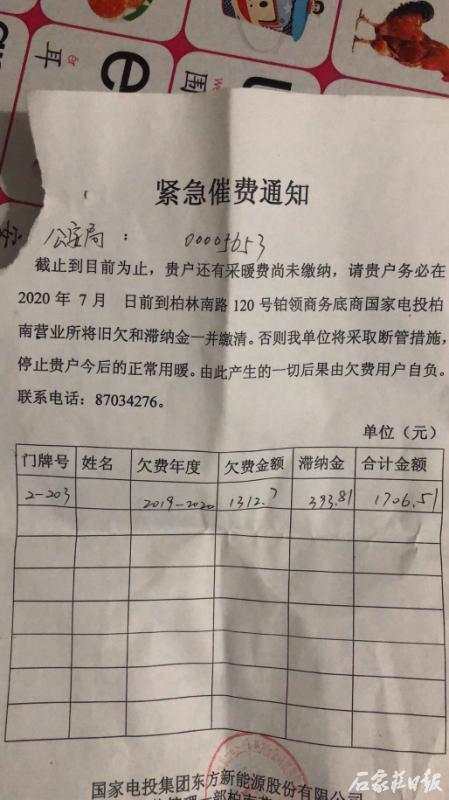 耳
er
e
围
紧急催费通知
公安局： 00005653
截止到目前为止，贵户还有采暖费尚未缴纳，请贵户务必在
2020年7月 日前到柏林南路120号铂领商务底商国家电投柏
南营业所将旧欠和滞纳金一并缴清。否则我单位将采取断管措施，
停止贵户今后的正常用暖。由此产生的一切后果由欠费用户自负。
联系电话：87034276。
单位（元）
门牌号 姓名 欠费年度 欠费金额 滞纳金 合计金额
2-203 2019-2020 1312.7 393.81 1706.51
国家电投集团东方新能源股份有限公司
石家庄日报